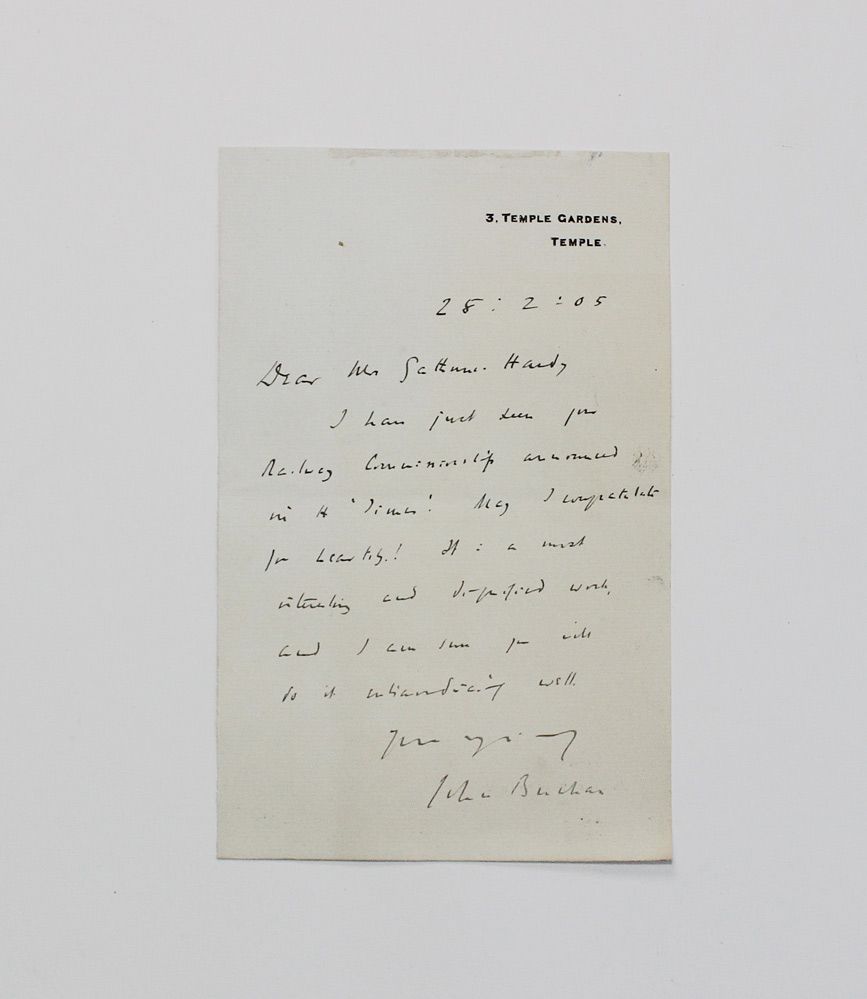 3, TEMPLE GARDENS,
TEMPLE.
28 : 2 : 05
Dear Mr Gathorne-Hardy
I have just seen your
Railway Commissionership announced
in the 'Times'. May I congratulate
you heartily! It is a most
interesting and dignified work,
and I am sure you will
do it extraordinarily well.
Yours
John Buchan